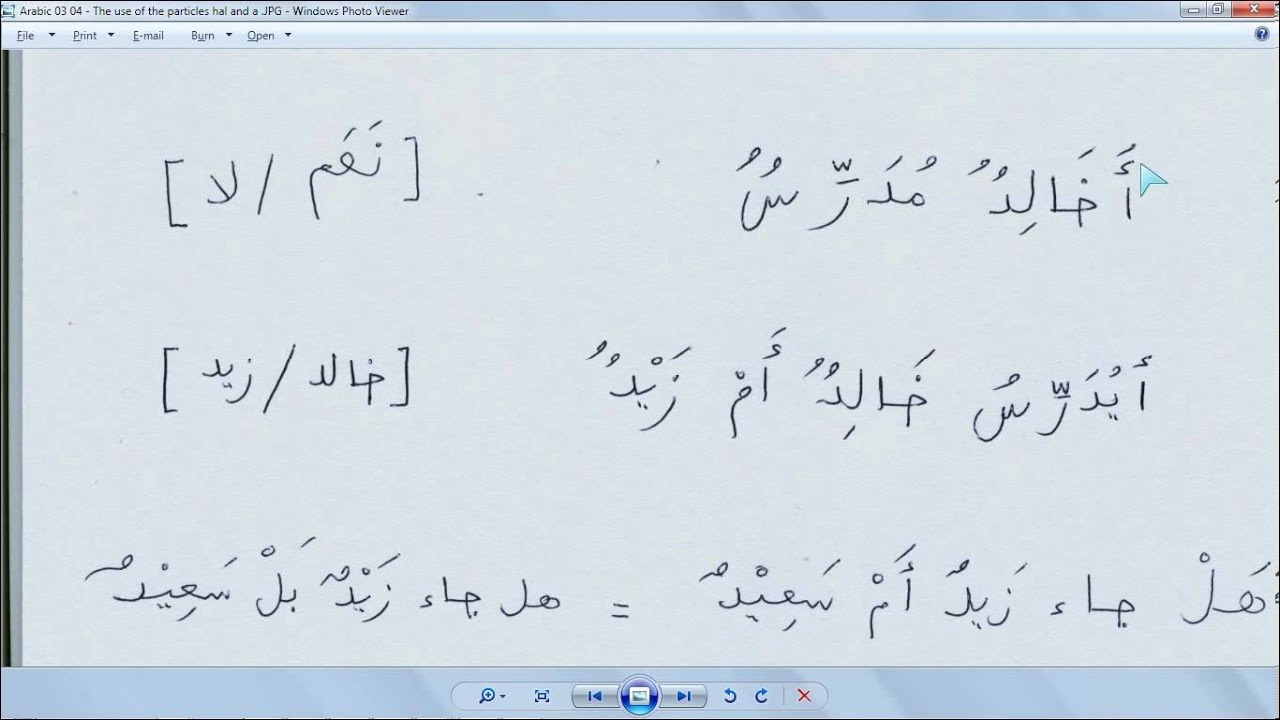 Arabic 03 04 - The use of the particles hal and a .JPG - Windows Photo Viewer
File Print E-mail Burn Open
أَخَالِدٌ مُدَرِّسٌ [نَعَم / لا]
أَيُدَرِّسُ خَالِدٌ أَمْ زَيْدٌ [خالد / زيد]
هَلْ جاء زَيدٌ أَمْ سَعِيْدٌ = هل جاء زَيْدٌ بَلْ سَعِيْدٌ